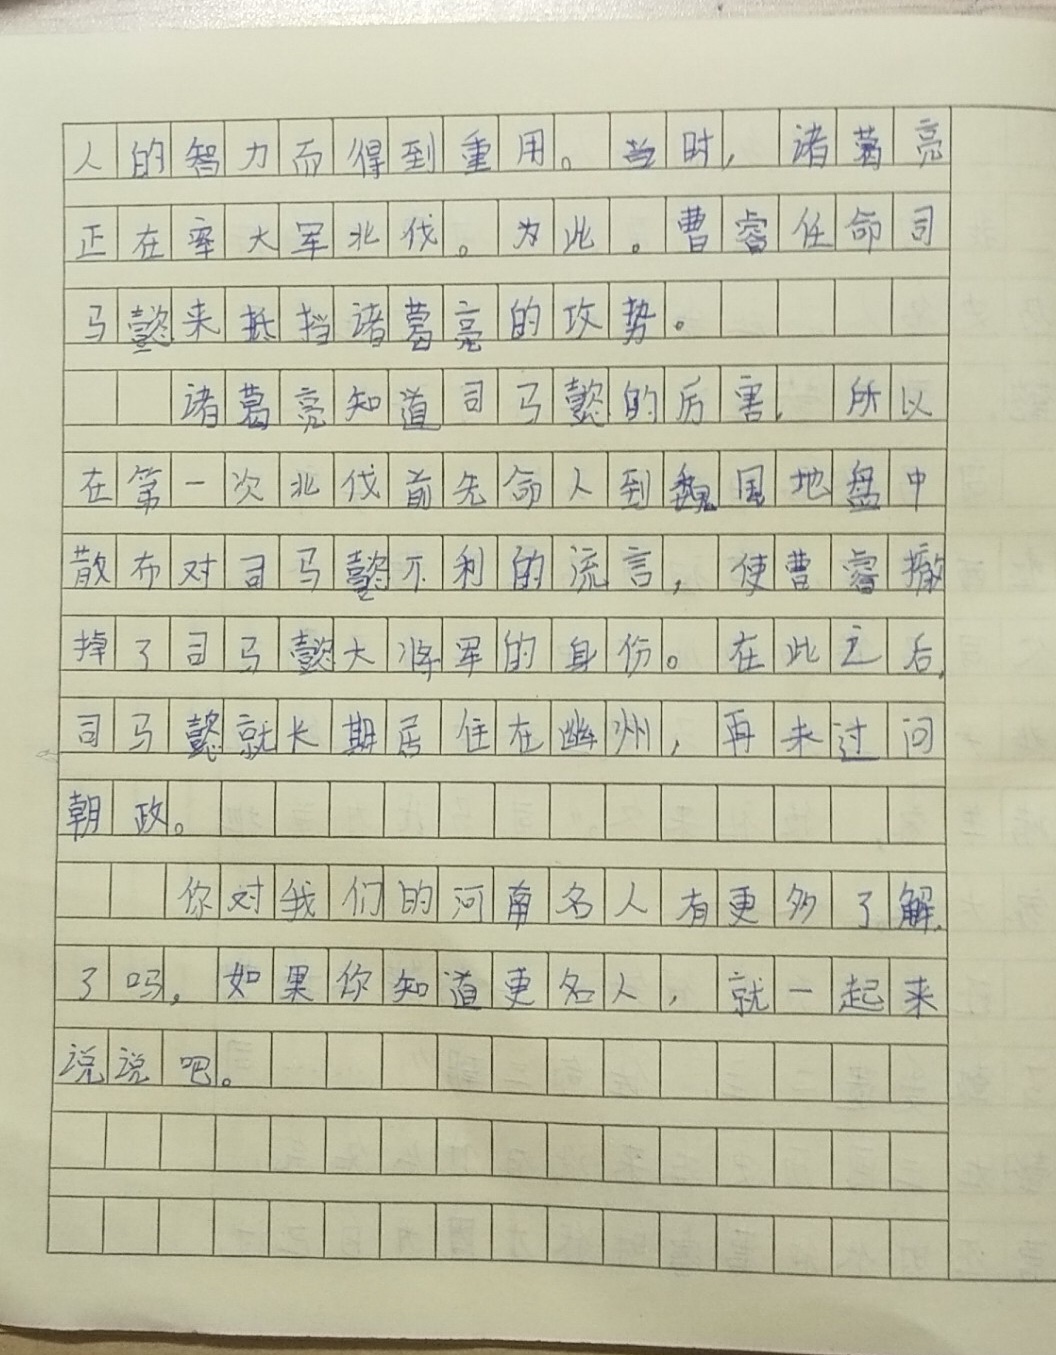 人的智力而得到重用。当时，诸葛亮
正在率大军北伐。为此。曹睿任命司
马懿来抵挡诸葛亮的攻势。
诸葛亮知道司马懿的厉害，所以
在第一次北伐前先命人到魏国地盘中
散布对司马懿不利的流言，使曹睿撤
掉了司马懿大将军的身份。在此之后，
司马懿就长期居住在幽州，再未过问
朝政。
你对我们的河南名人有更多了解，
了吗，如果你知道更名人，就一起来
说说吧。